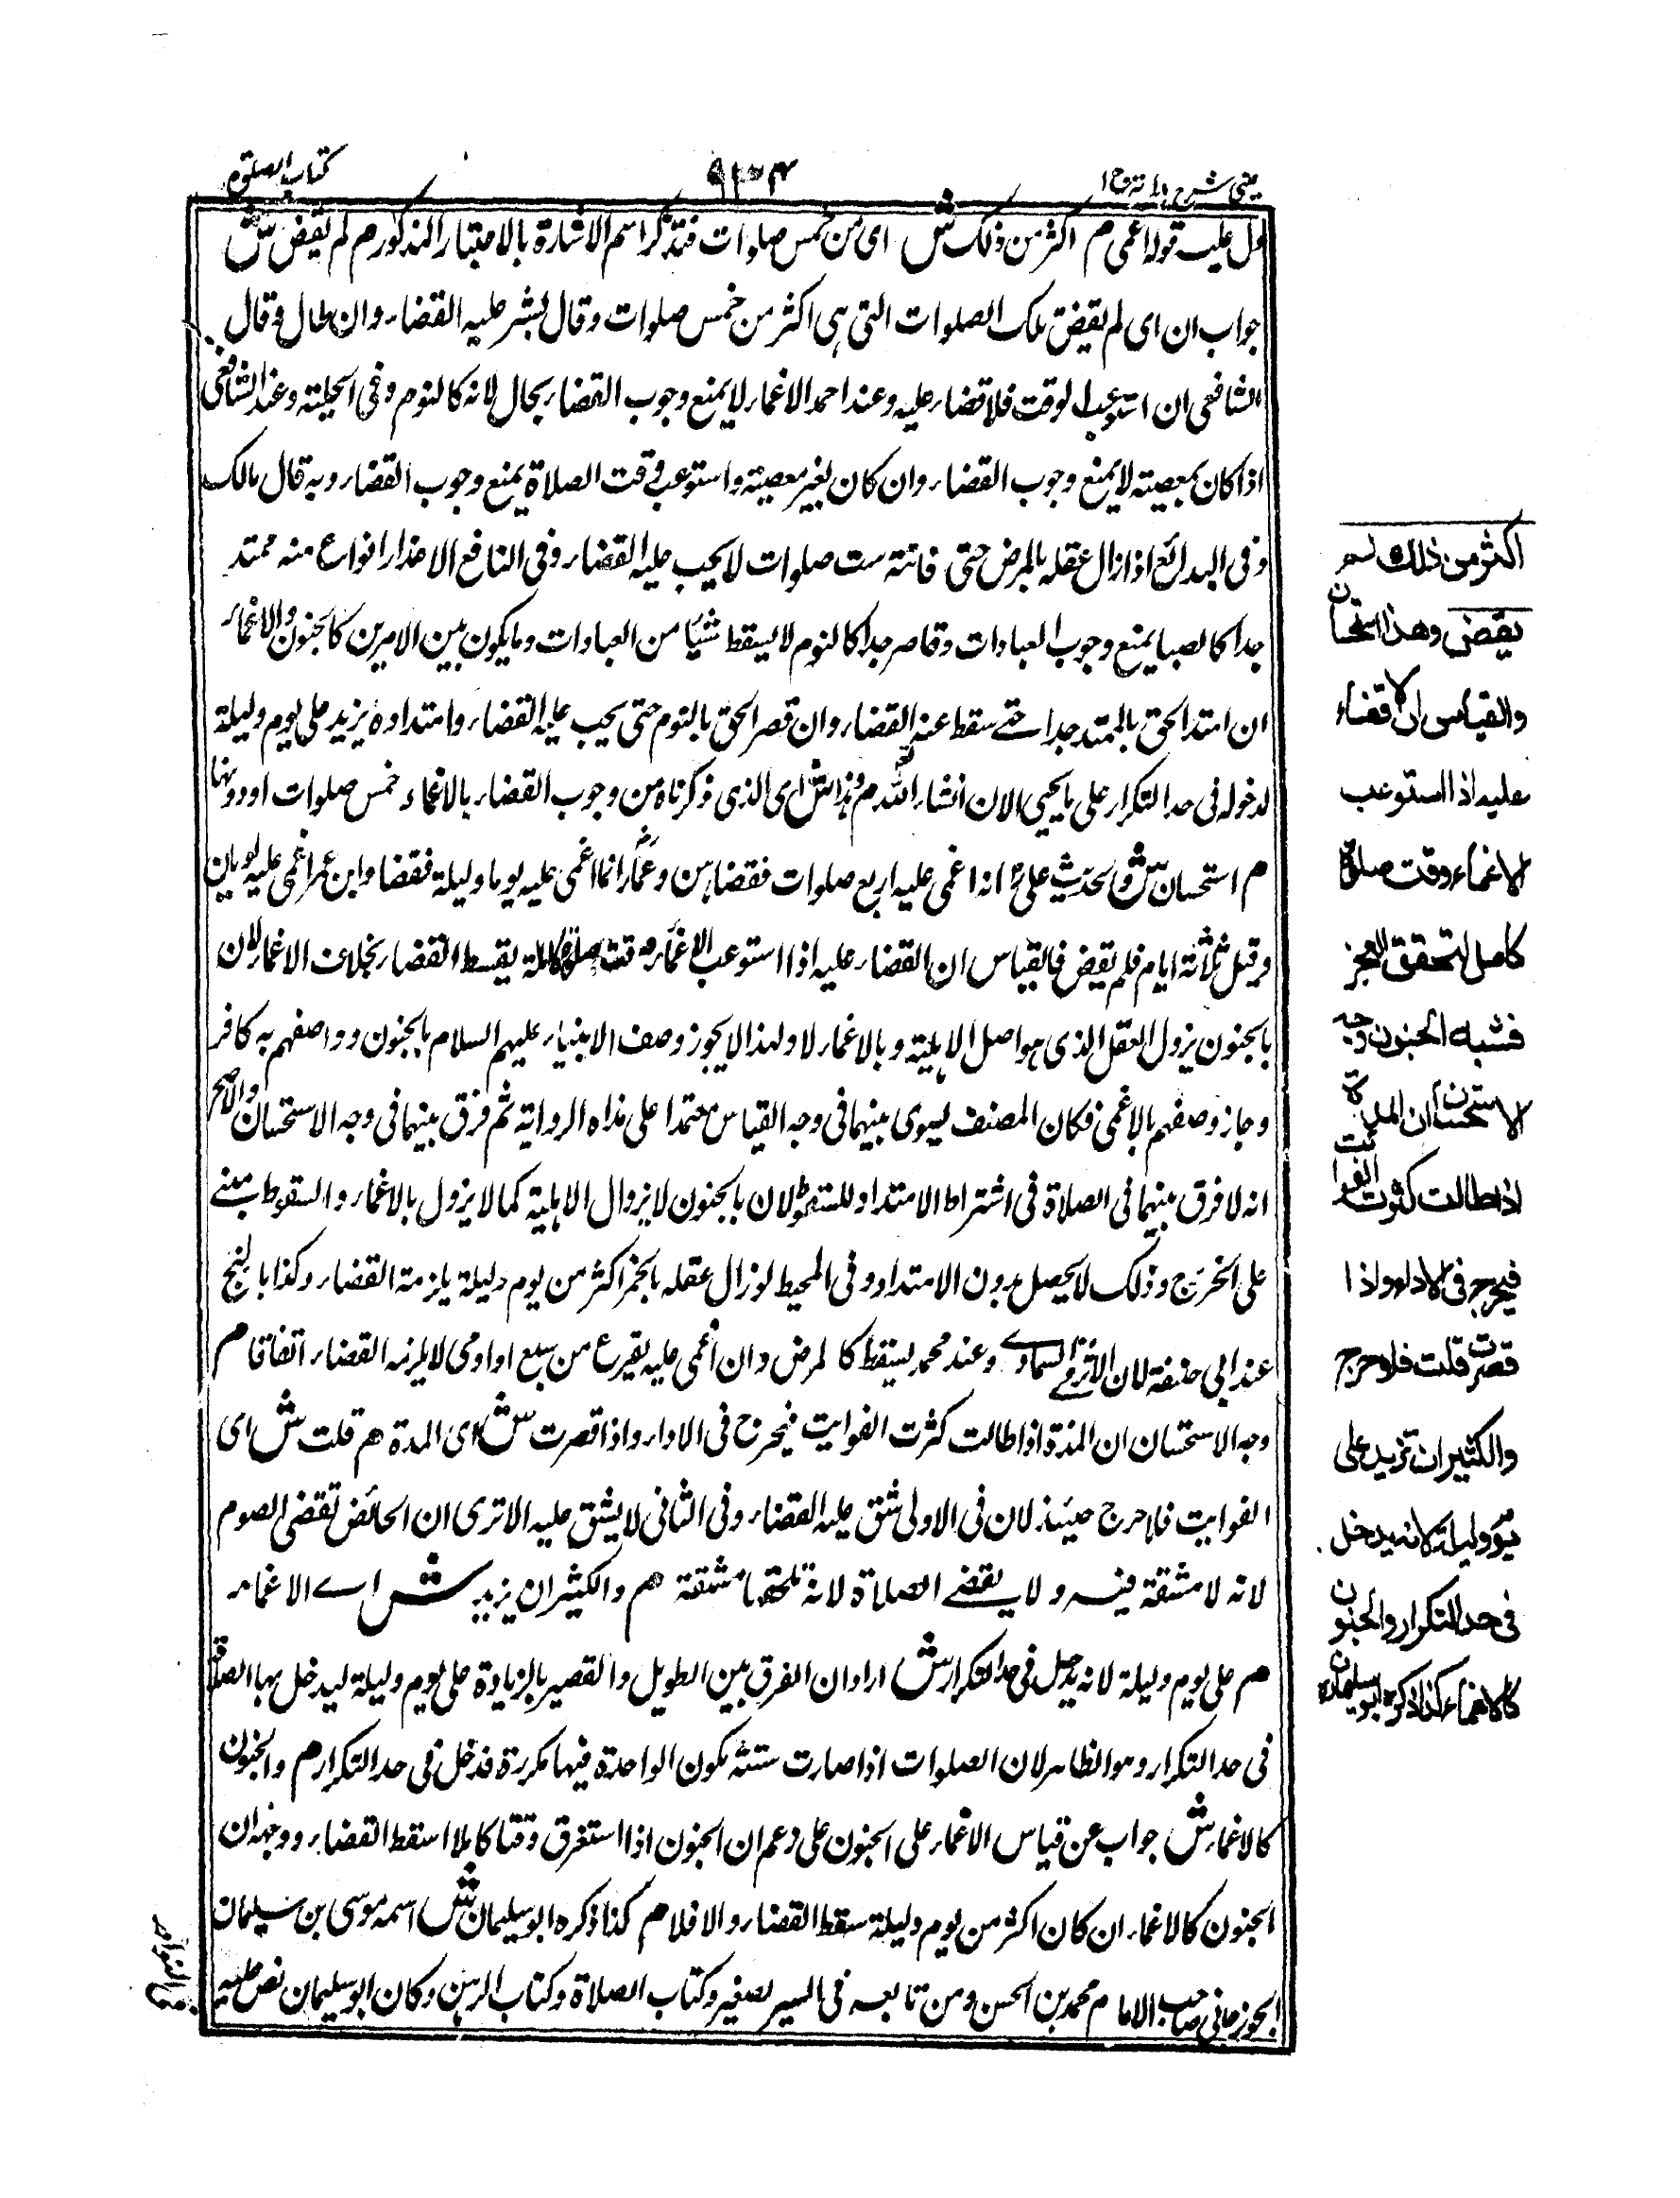 عینی شرح ہدایہ ج ۱
۹۳۴
کتاب الصلوۃ
دل علیہ قولہ اغمی م اکثر من ذلک ش ای من خمس صلوات فتذکر اسم الاشارة بالاعتبار المذکور م لم یقض ش
جواب ان ای لم یقض تلک الصلوات التی ہی اکثر من خمس صلوات وقال بشر علیہ القضاء وان طال وقال
الشافعی ان استوعب الوقت فلا قضاء علیہ وعند احمد الاغماء لا یمنع وجوب القضاء بحال لانہ کالنوم وفی الحلیتہ وعند الشافعی
اذا کان بمعصیتہ لا یمنع وجوب القضاء وان کان بغیر معصیتہ واستوعب وقت الصلاة یمنع وجوب القضاء وبہ قال مالک
وفی البدائع اذا زال عقلہ بالمرض حتی فاتتہ ست صلوات لا یجب علیہ القضاء وفی النافع الاعذار انواع منہ ممتد
جدا کالصبا یمنع وجوب العبادات وقاصر جدا کالنوم لا یسقط شیئا من العبادات وما یکون بین الامرین کالجنون والاغماء
ان امتد الحق بالممتد جدا حتے سقط عنہ القضاء وان قصر الحق بالنوم حتی یجب علیہ القضاء وامتدادہ یزید علی یوم ولیلة
لدخولہ فی حد التکرار علی ما یجیی الان انشاء اللہ م وہذا ش ای الذی ذکرناہ من وجوب القضاء بالاغماء خمس صلوات او دونہا
م استحسان ش والحدیث علی انہ اغمی علیہ اربع صلوات فقضاہن وعمار انما اغمی علیہ یوما ولیلة فقضا وابن عمر اغمی علیہ یومین
وقیل ثلاثة ایام فلم یقض فالقیاس ان القضاء علیہ اذا استوعب الاغماء وقت صلوة کاملة یسقط القضاء بخلاف الاغماء لان
بالجنون یزول العقل الذی ہو اصل الاہلیة وبالاغماء لا ولہذا لا یجوز وصف الانبیاء علیہم السلام بالجنون وواصفہم بہ کافر
وجاز وصفہم بالاغمی فکان المصنف لیسوی بینہما فی وجہ القیاس معتمدا علی ہذاہ الروایة ثم فرق بینہما فی وجہ الاستحسان والاصح
انہ لا فرق بینہما فی الصلاة فی اشتراط الامتداد للسقوط لان بالجنون لا یزوال الاہلیة کما لا یزول بالاغماء والسقوط مبنے
علی الحرج وذلک لا یحصل بدون الامتداد وفی المحیط لو زال عقلہ بالخمر اکثر من یوم ولیلة یلزمتہ القضاء وکذا بالبنج
عند ابی حنیفة لان الاثر فی السماوے وعند محمد یسقط کالمرض وان اغمی علیہ بفزع من سبع او ادمی لا یلزمہ القضاء اتفاقا م
وجہ الاستحسان ان المدة اذا طالت کثرت الفوایت فیحرج فی الاداء واذا قصرت ش ای المدة ھم قلت ش ای
الفوایت فلا حرج حینئذ لان فی الاولی شق علیہ القضاء وفی الثانی لا یشق علیہ الا تری ان الحائض تقضی الصوم
لانہ لا مشقة فیہ ولا یقضے الصلاة لانہ تلحقہا مشقة ھم والکثیر ان یزید ش اے الاغماء
ھم علی یوم ولیلة لانہ یدخل فی حد التکرار ش اراد ان الفرق بین الطویل والقصیر بالزیادة علی یوم ولیلة لیدخل بہا الصلوة
فی حد التکرار وہو الظاہر لان الصلوات اذا صارت ستة تکون الواحدة فیہا مکررة فدخل فی حد التکرار م والجنون
کالاغماء ش جواب عن قیاس الاغماء علی الجنون علی زعم ان الجنون اذا استغرق وقتا کاملا اسقط القضاء ووجہہ ان
الجنون کالاغماء ان کان اکثر من یوم ولیلة سقط القضاء والا فلا م کذا ذکرہ ابو سلیمان ش اسمہ موسی بن سلیمان
الجوزجانی صاحب الامام محمد بن الحسن ومن تابعہ فی السیر الصغیر وکتاب الصلاة وکتاب الرہن وکان ابو سلیمان نص علیہ
اکثر من ذلك لم
یقض وهذا استحسان
والقیاس ان لا قضاء
علیہ اذا استوعب
الاغماء وقت صلوة
کامل لتحقق العجز
فشبه الجنون وجه
الاستحسان ان المدة
اذا طالت کثرت الفوائت
فیحرج فی الاداء واذا
قصرت قلت فلا حرج
والکثیر ان تزید علی
یوم ولیلة لانه یدخل
فی حد التکرار والجنون
کالاغماء کذا ذکرہ ابو سلیمان